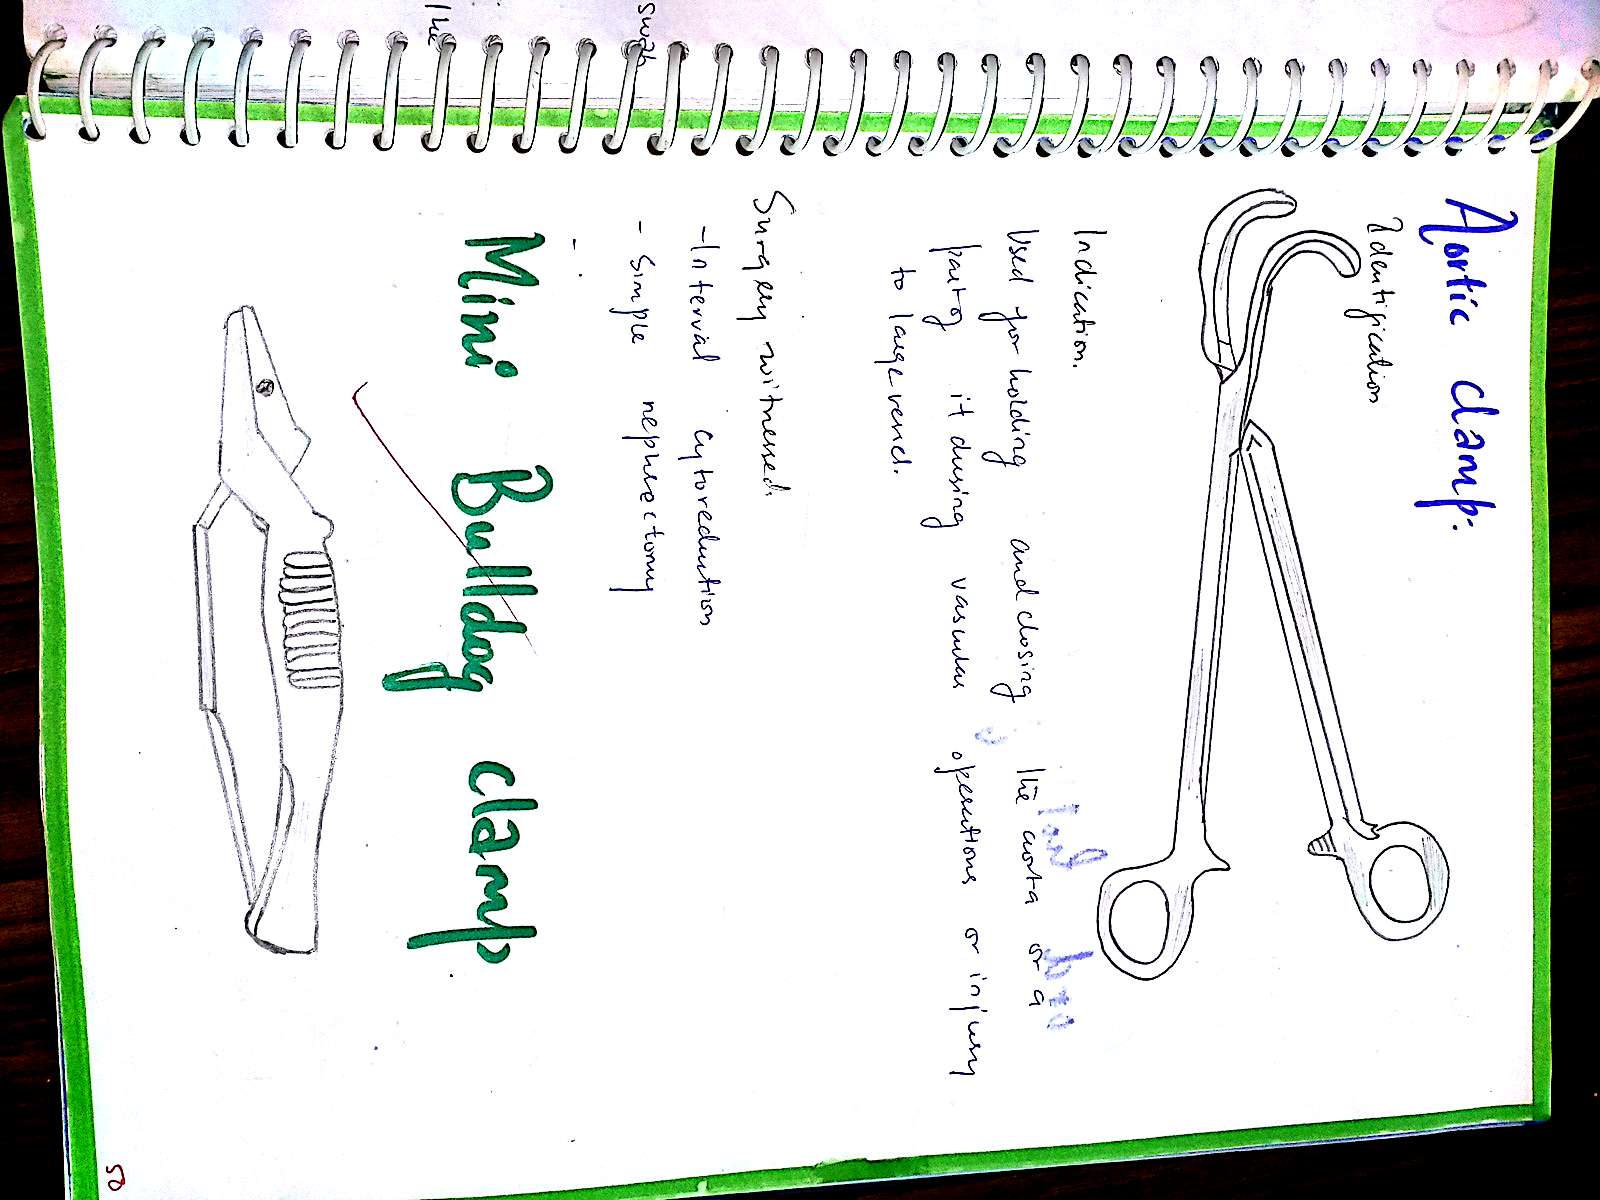 Aortic clamp:
Identification
Indication.
Used for holding and closing the aorta or a
part of it during vascular operations or injury
to large vessel.
Surgery witnessed.
- Interval cytoreduction
- simple nephrectomy
-
Mini Bulldog clamp
25
swab
the